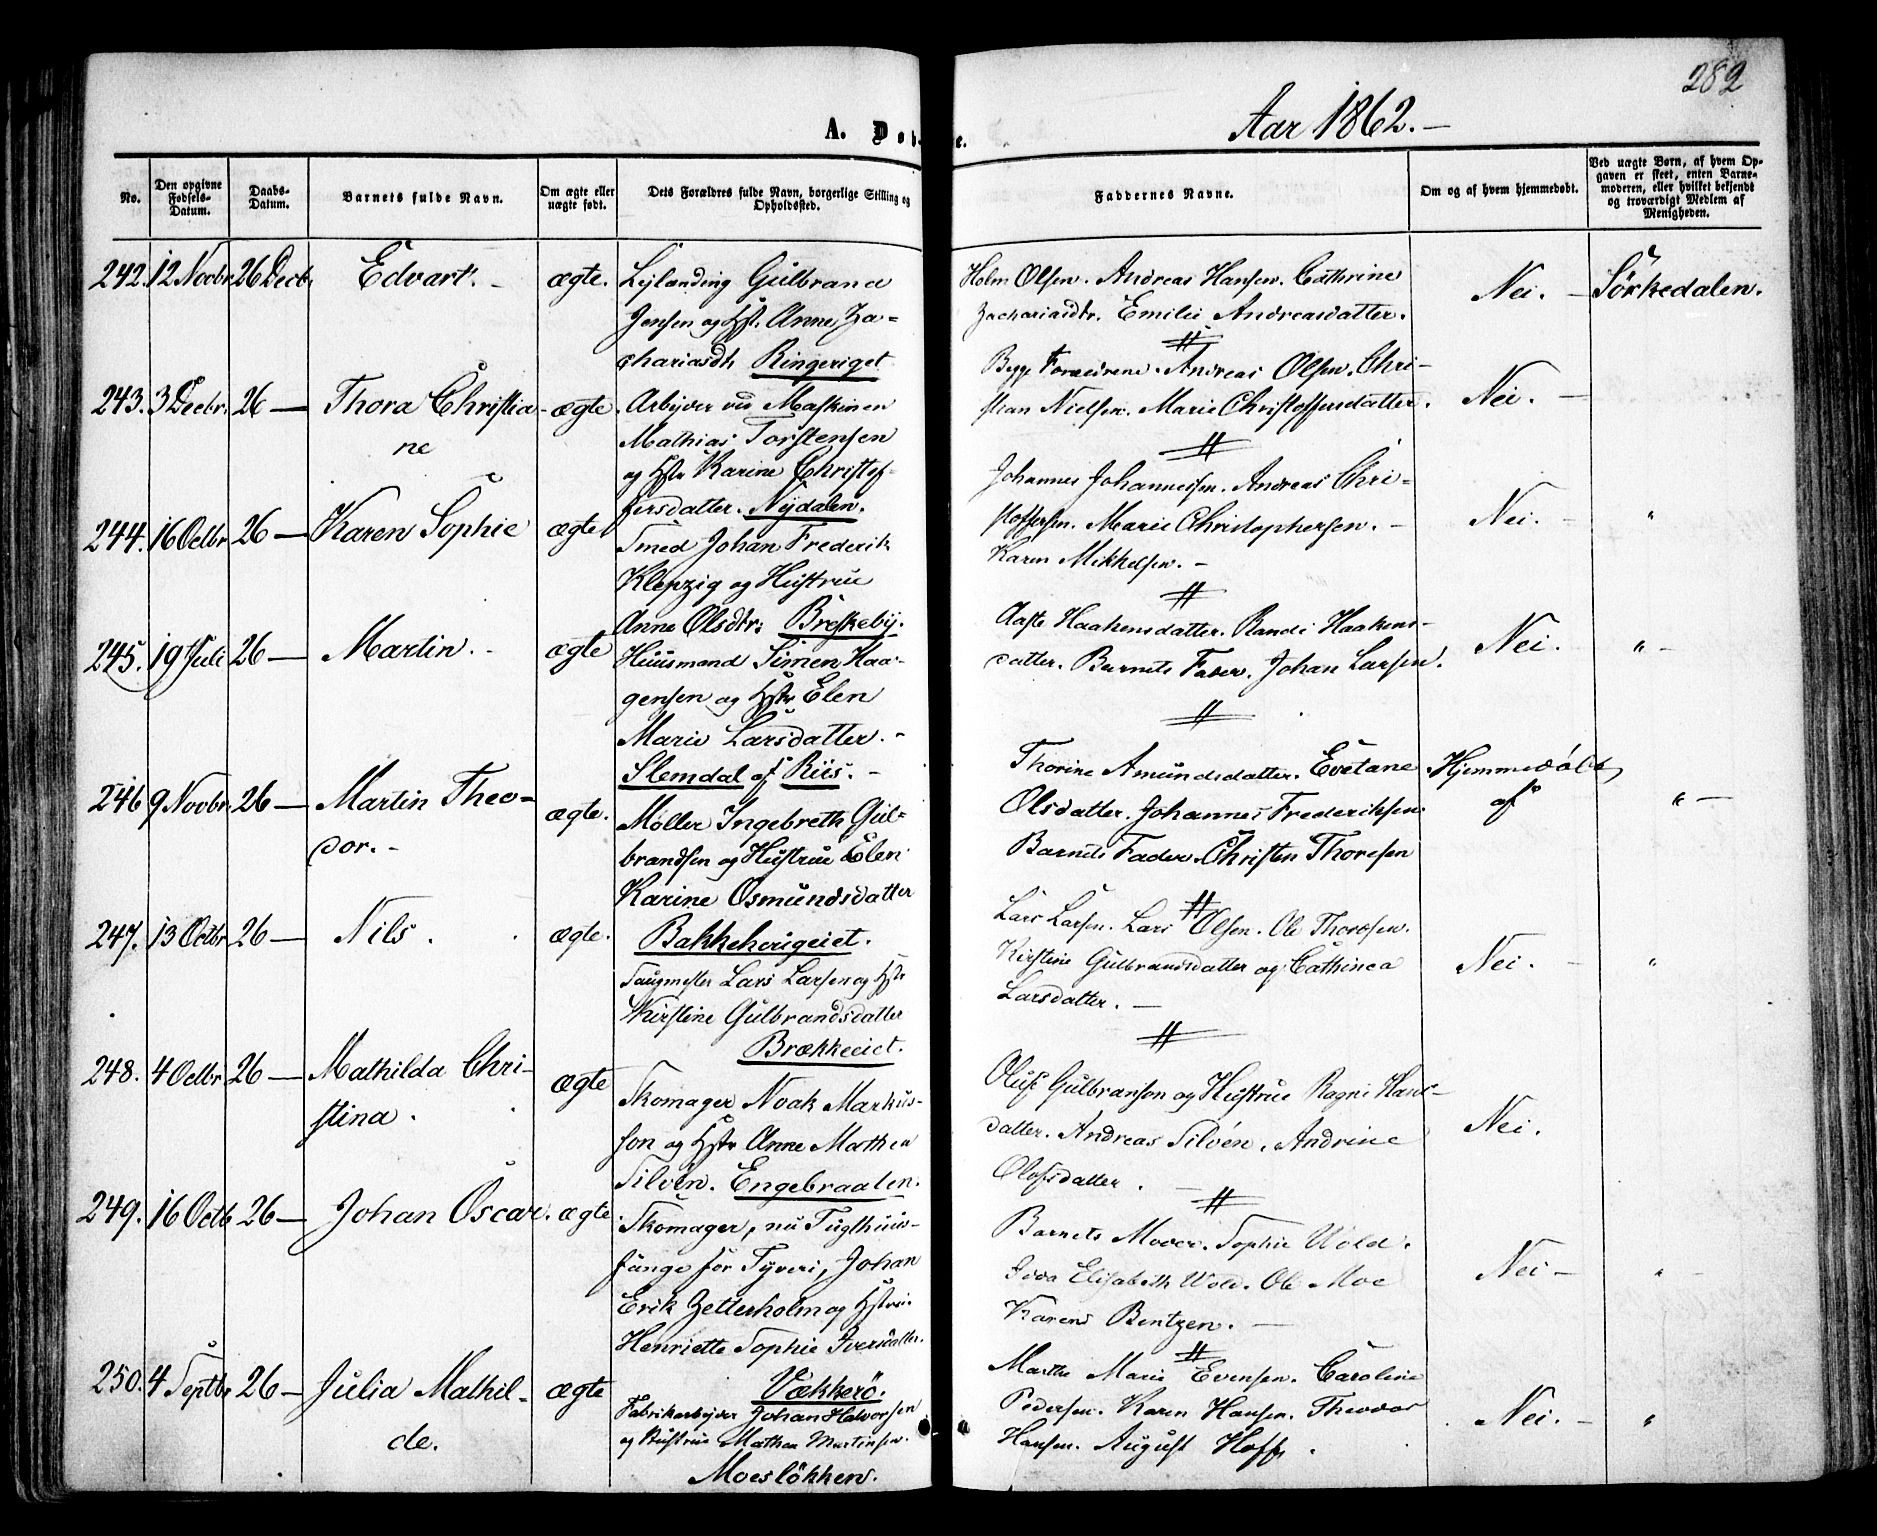 282
Aar 1862. –
A. Dob
e.
No.
Den opgivne Fødsels-Datum.
Daabs-Datum.
Barnets fulde Navn.
Om ægte eller uægte født.
Dets Forældres fulde Navn, borgerlige Stilling og Opholdssted.
Faddernes Navne.
Om og af hvem hjemmedøbt.
Ved uægte Børn, af hvem Opgaven er skeet, enten Barnemoderen, eller hvilket bekjendt og troværdigt Medlem af Menigheden.
242. 12 Novbr 26 Decb. Edvart. – ægte.
Lejlænding Gulbrand
Jensen og Hst. Anne Za=
chariasdtr Ringeriget
Holm Olsen. Andreas Hansen. Cathrine
Zachariasdtr. Emilie Andreasdatter.
Nei. – Sørkedalen.
243. 3 Decbr. 26 – Thora Christia-
ne
ægte
Arbejder ved Maskinen
Mathias Torstensen
og Hstr Karine Christof-
fersdatter. Nydalen.
Begge Forældrene. Andreas Olsen. Chri-
stian Nielsen. Marie Christoffersdatter.
Nei. –
244. 16 Octbr 26 – Karen Sophie ægte
Smed Johan Frederik
Klepzig og Hustrue
Anne Olsdtr: Breskeby.
Johannes Johannessen. Andreas Chri=
stoffersen. Marie Christophersen. –
Karen Mikkelsen. –
Nei. – "
245. 19 Juli 26 – Martin. – ægte
Huusmand Simen Haa-
gensen og Hstr Elen
Marie Larsdatter. –
Slemdal af Riis. –
Aaste Haakensdatter. Randi Haakens-
datter. Barnets Fader. Johan Larsen.
Nei. – " –
246 9 Novbr. 26 – Martin Theo-
dor. –
ægte.
Møller Ingebreth Gul-
brandsen og Hustrue Elen
Karine Osmundsdatter
Bakkehougeiet.
Thorine Amundsdatter. Evetane
Olsdatter. Johannes Frederiksen.
Barnets Fader. Christen Thoresen
Hjemmedøbt
af
" –
247. 13 Octbr 26 – Nils. ægte.
Saugmester Lars Larsen og Hstr
Kirstine Gulbrandsdatter
Brækkeeiet.
Lars Larsen. Lars Olsen. Ole Thoresen.
Kirstine Gulbrandsdatter og Cathinca
Larsdatter. –
Nei. – "
248. 4 Octbr 26 – Mathilda Chri-
stina.
ægte
Skomager Noak Markus-
son og Hstr Anne Mathea
Silvén. Engebraaten.
Oluf Gulbranson og Hustrue Ragni Hans-
datter. Andreas Silvén. Andrine
Olofsdatter. –
Nei.
249. 16 Octb 26 – Johan Oscar. ægte
Skomager, nu Tugthuus-
fange for Tyveri, Johan
Erik Zetterholm og Hstrue
Henriette Sophie Iversdatter.
Vækkerö.
Barnets Moder. Sophie Wold.
Ivda Elisabeth Wold. Ole Moe
Karen Bentzen. –
Nei – " –
250. 4 Septbr 26 – Julia Mathil-
de.
ægte
Fabrikarbejder Johan Halvorsen
og Hustrue Mathea Martinsen.
Moesløkken.
Marthe Marie Evensen. Caroline
Pedersen. Karen Hansen. Theodor
Hansen. August Hoff.
Nei. – "